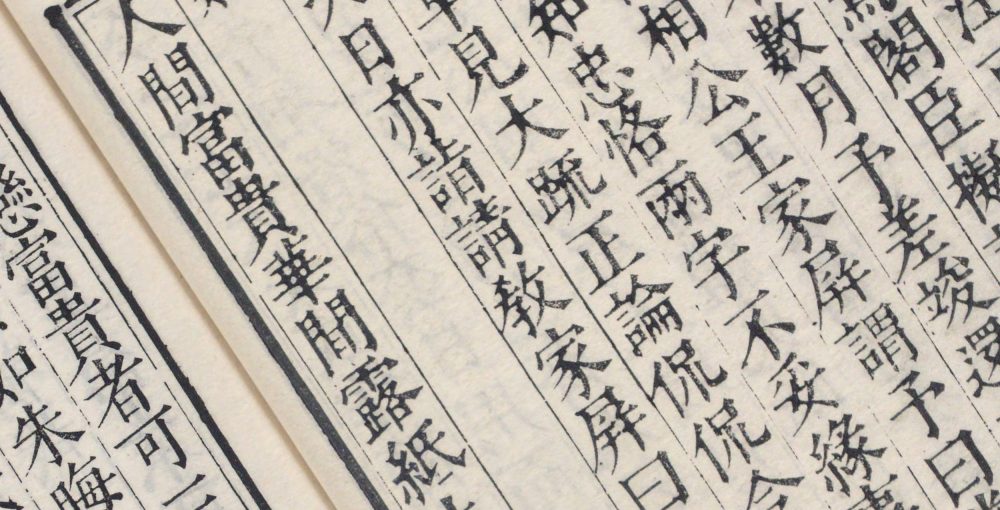 閣臣擬
數月予差竣還
相公王家屏謂予曰
忠恪兩字不妥緣
見大疏正論侃侃
日亦詣請教家屏曰
人間富貴華閒露紙
富貴者可
如朱晦